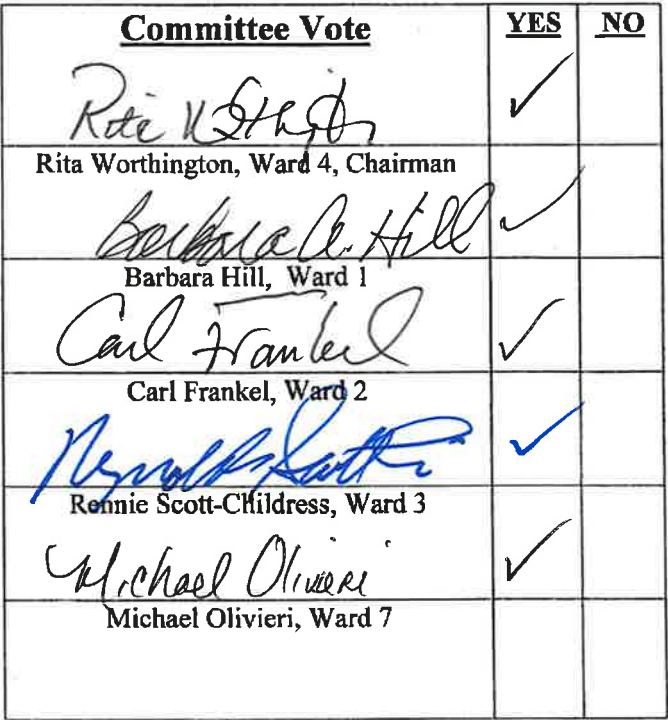 Committee Vote YES NO
Rita Worthington ✓
Rita Worthington, Ward 4, Chairman
Barbara A. Hill ✓
Barbara Hill, Ward 1
Carl Frankel ✓
Carl Frankel, Ward 2
Reynolds Scott ✓
Rennie Scott-Childress, Ward 3
Michael Olivieri ✓
Michael Olivieri, Ward 7